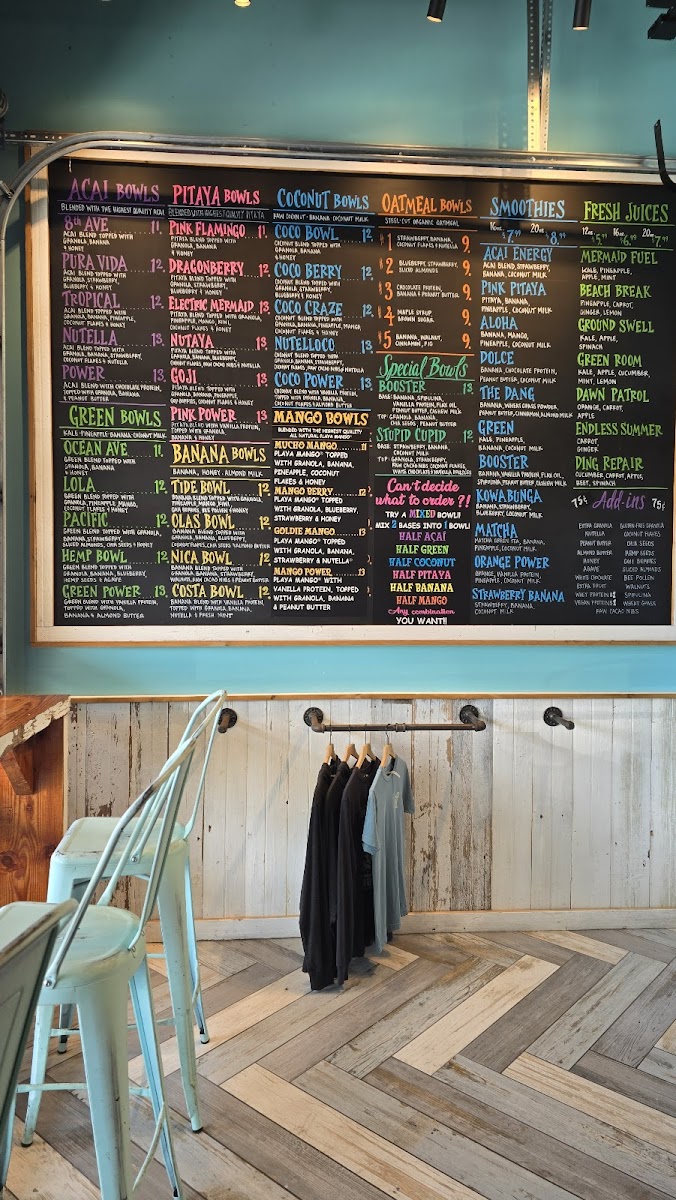 ACAI BOWLS
BLENDED WITH THE HIGHEST QUALITY ACAI
8th AVE 11.
ACAI BLEND TOPPED WITH
GRANOLA, BANANA
& HONEY
PURA VIDA 12.
ACAI BLEND TOPPED WITH
GRANOLA, BANANA, STRAWBERRY
& HONEY
TROPICAL 12.
ACAI BLEND TOPPED WITH
COCONUT FLAKES & HONEY
NUTELLA 13.
ACAI BLEND TOPPED WITH
GRANOLA, BANANA, STRAWBERRY,
COCONUT FLAKES & NUTELLA
POWER 13.
ACAI BLEND WITH CHOCOLATE PROTEIN,
TOPPED WITH GRANOLA, BANANA
& PEANUT BUTTER
GREEN BOWLS
KALE-PINEAPPLE-BANANA-COCONUT MILK
OCEAN AVE 11.
GREEN BLEND TOPPED WITH
GRANOLA, BANANA
& HONEY
LOLA 12.
GREEN BLEND TOPPED WITH
GRANOLA, PINEAPPLE, MANGO,
COCONUT FLAKES & HONEY
PACIFIC 12.
GREEN BLEND TOPPED WITH GRANOLA,
BANANA, STRAWBERRY,
SLICED ALMONDS, CHIA SEEDS & HONEY
HEMP BOWL 12.
GREEN BLEND TOPPED WITH
GRANOLA, BANANA, BLUEBERRY,
HEMP SEEDS & AGAVE
GREEN POWER 13.
GREEN BLEND WITH VANILLA PROTEIN,
TOPPED WITH GRANOLA,
BANANA & ALMOND BUTTER
PITAYA BOWLS
BLENDED WITH HIGHEST QUALITY PITAYA
PINK FLAMINGO 11.
PITAYA BLEND TOPPED WITH
GRANOLA, BANANA
& HONEY
DRAGONBERRY 12.
PITAYA BLEND TOPPED WITH
GRANOLA, STRAWBERRY,
BLUEBERRY & HONEY
ELECTRIC MERMAID 13.
PITAYA BLEND TOPPED WITH GRANOLA,
PINEAPPLE, MANGO, KIWI,
COCONUT FLAKES & HONEY
NUTAYA 13.
PITAYA BLEND TOPPED WITH
GRANOLA, BANANA, BLUEBERRY,
COCONUT FLAKES, RAW CACAO NIBS & NUTELLA
GOJI 13.
PITAYA BLEND TOPPED WITH
GRANOLA, BANANA, PINEAPPLE,
GOJI BERRIES, COCONUT FLAKES & HONEY
PINK POWER 13.
PITAYA BLEND WITH VANILLA PROTEIN,
TOPPED WITH GRANOLA,
BANANA & HONEY
BANANA BOWLS
BANANA, HONEY, ALMOND MILK
TIDE BOWL 12.
BANANA BLEND TOPPED WITH GRANOLA,
PINEAPPLE, MANGO, KIWI,
OLAS BOWL 12.
BANANA BLEND TOPPED WITH
GRANOLA, BANANA, BLUEBERRY,
COCONUT FLAKES, CHIA SEEDS & ALMOND BUTTER
NICA BOWL 12.
BANANA BLEND TOPPED WITH
GRANOLA, BANANA, STRAWBERRY,
WALNUTS, RAW CACAO NIBS & PEANUT BUTTER
COSTA BOWL 12.
BANANA BLEND WITH VANILLA PROTEIN,
TOPPED WITH GRANOLA, BANANA,
NUTELLA & FRESH MINT
COCONUT BOWLS
RAW COCONUT-BANANA-COCONUT MILK
COCO BOWL 12.
COCONUT BLEND TOPPED WITH
GRANOLA, BANANA
& HONEY
COCO BERRY 12.
COCONUT BLEND TOPPED WITH
GRANOLA, STRAWBERRY,
BLUEBERRY & HONEY
COCO CRAZE 12.
COCONUT BLEND TOPPED WITH
GRANOLA, BANANA, PINEAPPLE, MANGO,
COCONUT FLAKES & HONEY
NUTELLOCO 13.
COCONUT BLEND TOPPED WITH
GRANOLA, BANANA, STRAWBERRY,
COCONUT FLAKES, RAW CACAO NIBS & NUTELLA
COCO POWER 13.
COCONUT BLEND WITH VANILLA PROTEIN,
TOPPED WITH GRANOLA, BANANA, BLUEBERRY,
COCONUT FLAKES & ALMOND BUTTER
MANGO BOWLS
BLENDED WITH THE HIGHEST QUALITY
ALL NATURAL PLAYA MANGO
MUCHO MANGO 11
PLAYA MANGO TOPPED
WITH GRANOLA, BANANA,
PINEAPPLE, COCONUT
FLAKES & HONEY
MANGO BERRY 12
PLAYA MANGO TOPPED
WITH GRANOLA, BLUEBERRY,
STRAWBERRY & HONEY
GOLDIE MANGO 13
PLAYA MANGO TOPPED
WITH GRANOLA, BANANA,
STRAWBERRY & NUTELLA
MANGO POWER 13
PLAYA MANGO WITH
VANILLA PROTEIN, TOPPED
WITH GRANOLA, BANANA
& PEANUT BUTTER
OATMEAL BOWLS
STEEL-CUT ORGANIC OATMEAL
#1 STRAWBERRY, BANANA,
COCONUT FLAKES & NUTELLA 9.
#2 BLUEBERRY, STRAWBERRY,
SLICED ALMONDS 9.
#3 CHOCOLATE PROTEIN,
BANANA & PEANUT BUTTER 9.
#4 MAPLE SYRUP
BROWN SUGAR 9.
#5 BANANA, WALNUT,
CINNAMON, PB 9.
Special Bowls
BOOSTER 13.
BASE: BANANA, SPIRULINA,
VANILLA PROTEIN, FLAX OIL,
PEANUT BUTTER, CASHEW MILK
TOP: GRANOLA, BANANA,
CHIA SEEDS, PEANUT BUTTER
STUPID CUPID 12.
BASE: STRAWBERRY, BANANA,
COCONUT MILK
TOP: GRANOLA, STRAWBERRY,
RAW CACAO NIBS, COCONUT FLAKES,
WHITE CHOCOLATE & NUTELLA DRIZZLE
Can't decide
what to order?!
TRY A MIXED BOWL!!
MIX 2 BASES INTO 1 BOWL!
HALF ACAÍ
HALF GREEN
HALF COCONUT
HALF PITAYA
HALF BANANA
HALF MANGO
Any combination
YOU WANT!!
SMOOTHIES
16oz $7.99 20oz $8.99
ACAI ENERGY
ACAI BLEND, STRAWBERRY,
BANANA, COCONUT MILK
PINK PITAYA
PITAYA, BANANA,
PINEAPPLE, COCONUT MILK
ALOHA
BANANA, MANGO,
PINEAPPLE, COCONUT MILK
DOLCE
BANANA, CHOCOLATE PROTEIN,
PEANUT BUTTER, COCONUT MILK
THE DANG
BANANA, WHEAT GRASS POWDER,
PEANUT BUTTER, CINNAMON, ALMOND MILK
GREEN
KALE, PINEAPPLE,
BANANA, COCONUT MILK
BOOSTER
BANANA, VANILLA PROTEIN, FLAX OIL,
SPIRULINA, PEANUT BUTTER, CASHEW MILK
KOWABUNGA
BANANA, STRAWBERRY,
BLUEBERRY, COCONUT MILK
MATCHA
MATCHA GREEN TEA, BANANA,
PINEAPPLE, COCONUT MILK
ORANGE POWER
ORANGE, VANILLA PROTEIN,
PINEAPPLE, COCONUT MILK
STRAWBERRY BANANA
STRAWBERRY, BANANA,
COCONUT MILK
FRESH JUICES
12oz $5.99 16oz $6.99 20oz $7.99
MERMAID FUEL
KALE, PINEAPPLE,
APPLE, MINT
BEACH BREAK
PINEAPPLE, CARROT,
GINGER, LEMON
GROUND SWELL
KALE, APPLE,
SPINACH
GREEN ROOM
KALE, APPLE, CUCUMBER,
MINT, LEMON
DAWN PATROL
ORANGE, CARROT,
APPLE
ENDLESS SUMMER
CARROT,
GINGER
DING REPAIR
CUCUMBER, CARROT, APPLE,
BEET, SPINACH
75¢ Add-ins 75¢
EXTRA GRANOLA
NUTELLA
PEANUT BUTTER
ALMOND BUTTER
HONEY
AGAVE
WHITE CHOCOLATE
EXTRA FRUIT
WHEY PROTEIN
VEGAN PROTEIN
GLUTEN-FREE GRANOLA
COCONUT FLAKES
CHIA SEEDS
HEMP SEEDS
GOJI BERRIES
SLICED ALMONDS
BEE POLLEN
WALNUTS
SPIRULINA
WHEAT GRASS
RAW CACAO NIBS